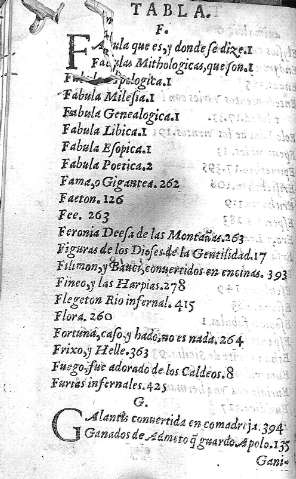 TABLA.
F.
FAbula que es, y donde se dize.1
Fabulas Mithologicas, que son.1
Fabula Apologita.1
Fabula Milesia.1
Fabula Genealogica.1
Fabula Libica.1
Fabula Esopica.1
Fabula Poetica.2
Fama, o Gigantea. 262
Faeton. 126
Fee. 263
Feronia Deesa de las Montañas.263
Figuras de los Dioses de la Gentilidad.17
Filimon, y Bauci, convertidos en encinas. 393
Fineo, y las Harpias.278
Flegeton Rio infernal. 415
Flora. 260
Fortuna, caso, y hado, no es nada. 264
Frixo, y Helle.363
Fuego, fue adorado de los Caldeos.8
Furias infernales.425
G.
GAlantis convertida en comadrija.394
Ganados de Admeto q̃ guardo Apolo.135
Gani-